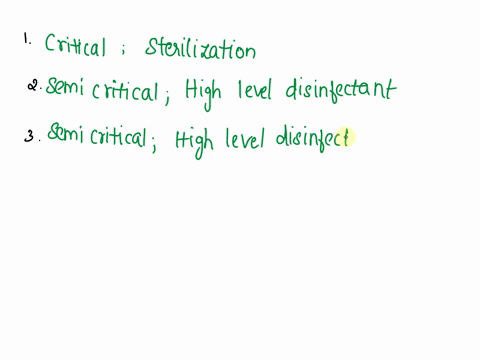 1. Critical ; Sterilization
2. Semi critical ; High level disinfectant
3. Semi critical ; High level disinfect